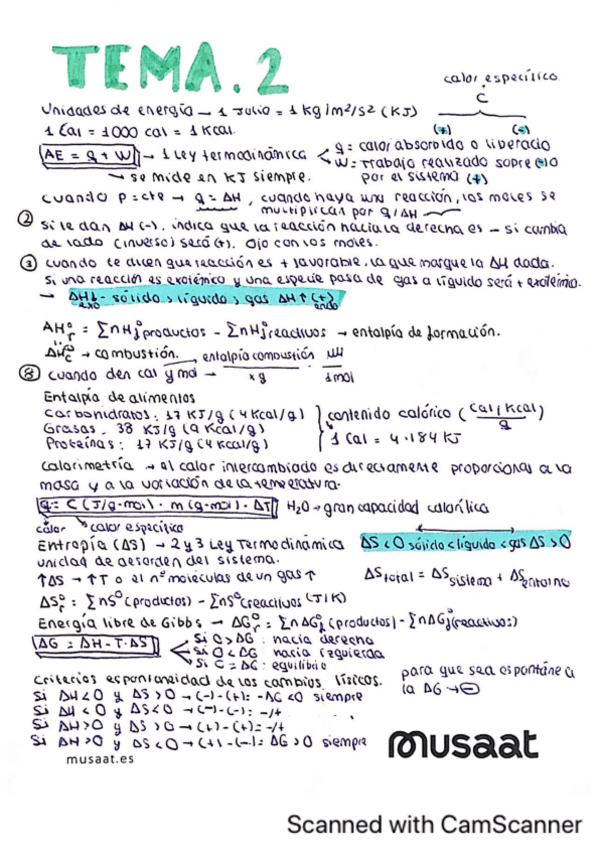 TEMA.2
calor específico
C
Unidades de energía → 1 Julio = 1 kg/m²/s² (KJ)
1 Cal = 1000 cal = 1 Kcal.
(+) (-)
ΔE = q + W → 1 Ley termodinámica
q = calor absorbido o liberado
W = trabajo realizado sobre (-) o
por el sistema (+)
→ se mide en KJ siempre.
cuando p = cte → q = ΔH, cuando haya una reacción, los moles se
multiplican por q/ΔH
② Si te dan ΔH (-), indica que la reacción hacia la derecha es - si cambia
de lado (inverso) será (+). Ojo con los moles.
③ cuando te dicen que reacción es + favorable, la que marque la ΔH dada.
Si una reacción es exotérmico y una especie pasa de gas a líquido será + exotérmio.
→ ΔH↓- sólido > líquido > gas ΔH↑ (+)
exo endo
ΔHr° = ΣnHf° productos - ΣnHf° reactivos → entalpía de formación.
ΔHc° → combustión.
entalpía combustión
xg 1mol
⑧ cuando den cal y mol →
Entalpía de alimentos
Carbohidratos: 17 KJ/g (4 Kcal/g)
Grasas: 38 KJ/g (9 Kcal/g)
Proteínas: 17 KJ/g (4 Kcal/g)
contenido calórico (Cal/Kcal)
g
1 Cal = 4.184 KJ
Calorimetría → el calor intercambiado es directamente proporcional a la
masa y a la variación de la temperatura.
q = C (J/g-mol) · m (g-mol) · ΔT H₂O → gran capacidad calorífica
calor calor específico
Entropía (ΔS) → 2 y 3 Ley Termodinámica
ΔS < 0 sólido < líquido < gas ΔS > 0
unidad de desorden del sistema.
↑ΔS → ↑T o el nº moléculas de un gas ↑
ΔStotal = ΔSsistema + ΔSentorno
ΔSr° = ΣnS° (productos) - ΣnS° (reactivos) (J/K)
Energía libre de Gibbs → ΔGr° = ΣnΔGf° (productos) - ΣnΔGf° (reactivos)
ΔG = ΔH - T·ΔS
Si 0 > ΔG : hacia derecha
Si 0 < ΔG : hacia izquierda
Si 0 = ΔG : equilibrio
Criterios espontaneidad de los cambios físicos.
para que sea espontánea
la ΔG → ⊖
Si ΔH < 0 y ΔS > 0 → (-) - (+) = -ΔG < 0 siempre
Si ΔH < 0 y ΔS < 0 → (-) - (-) = -/+
Si ΔH > 0 y ΔS > 0 → (+) - (+) = -/+
Si ΔH > 0 y ΔS < 0 → (+) - (-) = ΔG > 0 siempre
musaat.es
musaat
Scanned with CamScanner